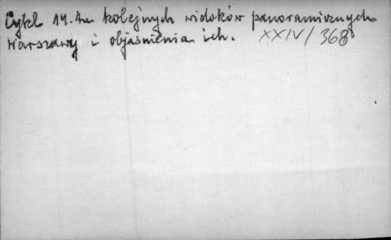 Cykl 14-tu kolejnych widoków panoramicznych
Warszawy i objaśnienia ich. XXIV/368